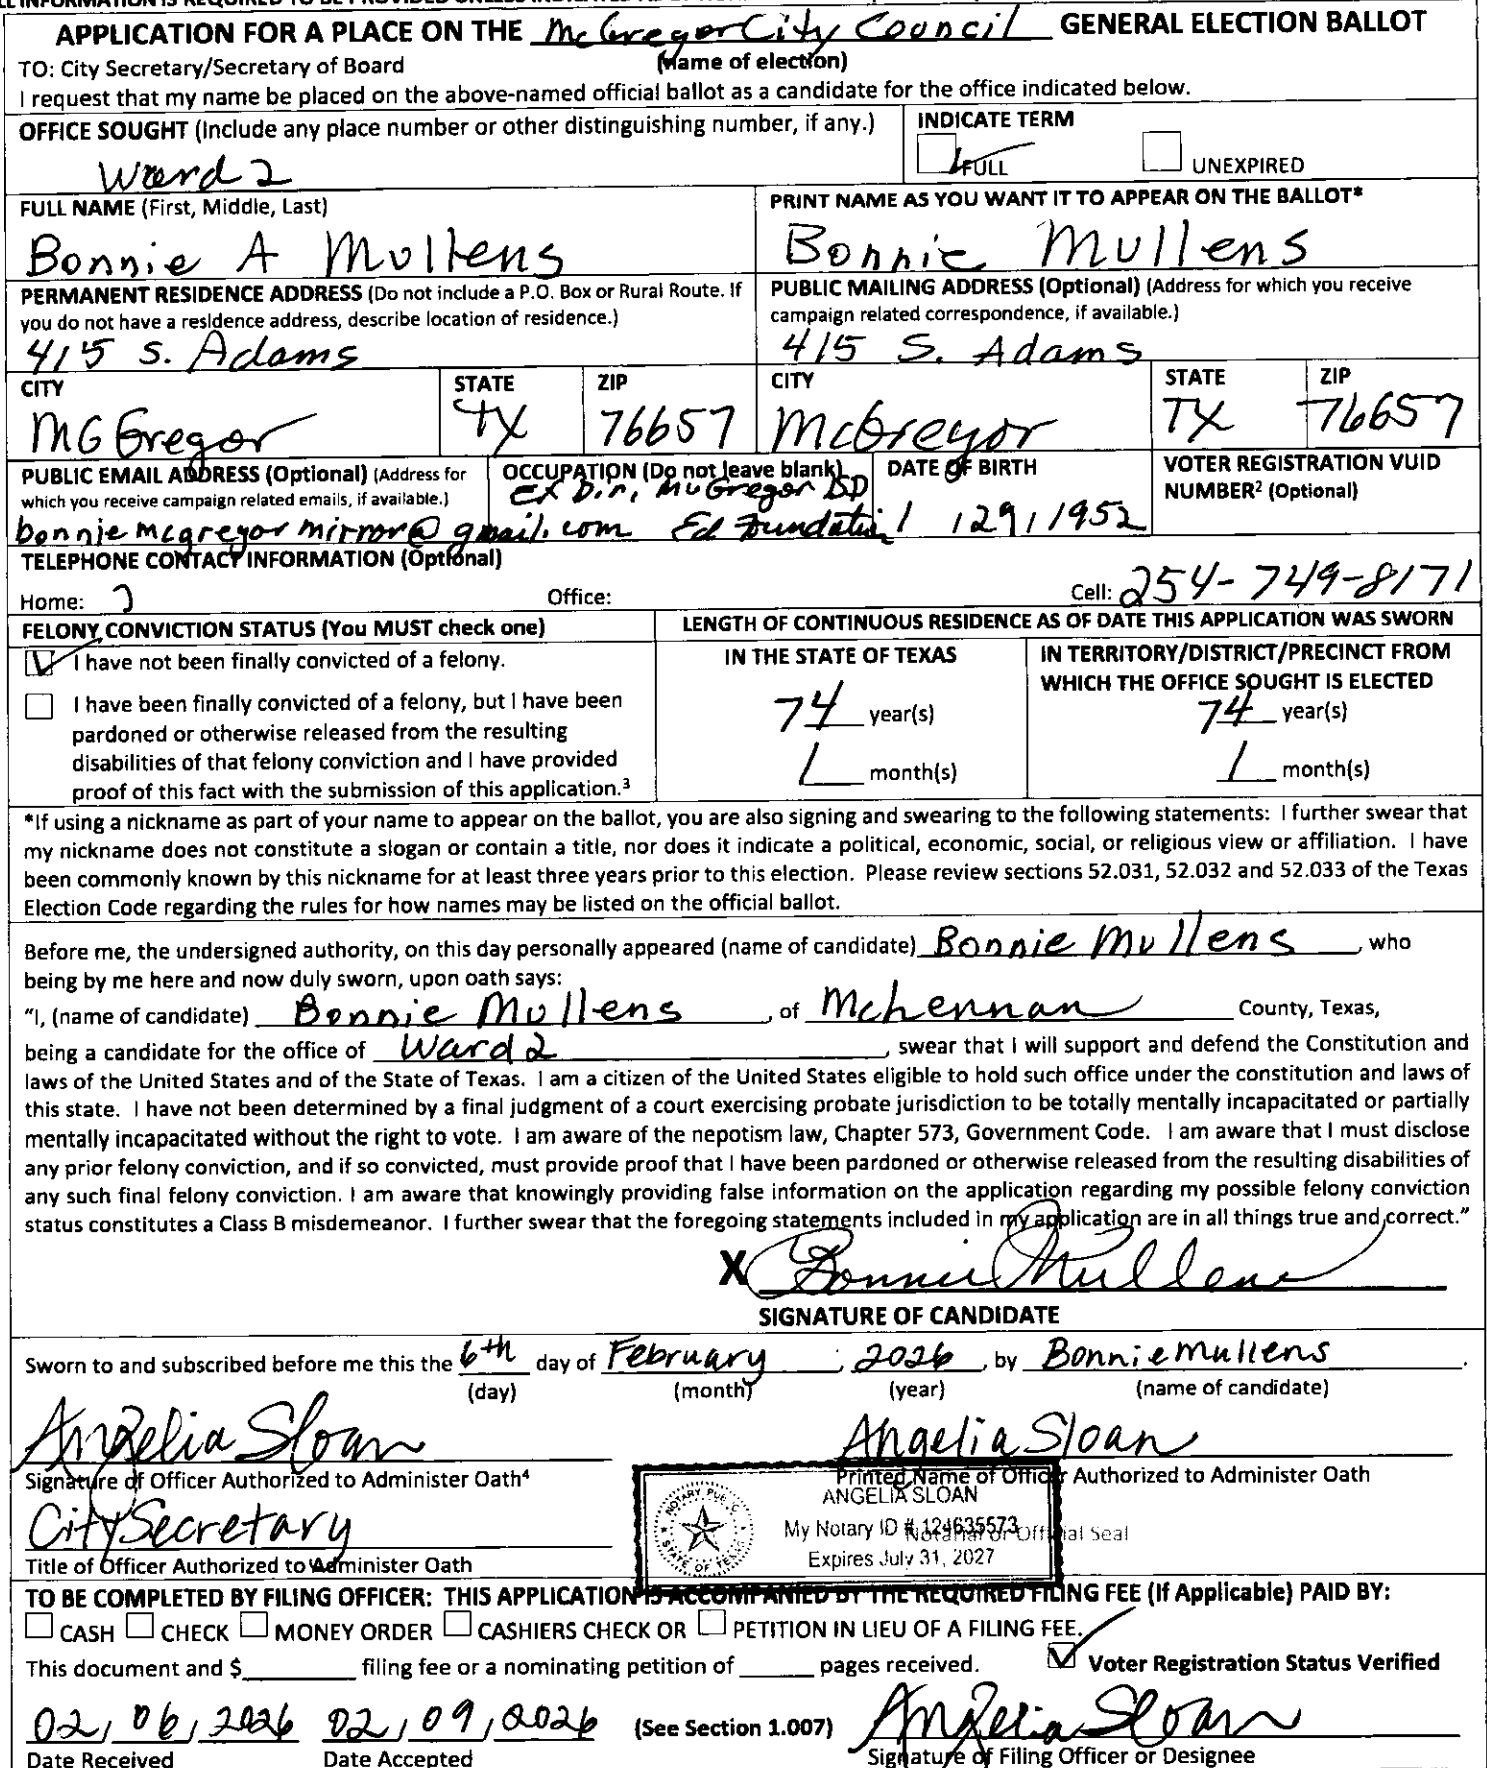 APPLICATION FOR A PLACE ON THE McGregor City Council GENERAL ELECTION BALLOT
TO: City Secretary/Secretary of Board (Name of election)
I request that my name be placed on the above-named official ballot as a candidate for the office indicated below.
OFFICE SOUGHT (Include any place number or other distinguishing number, if any.) INDICATE TERM
Ward 2 FULL UNEXPIRED
FULL NAME (First, Middle, Last) PRINT NAME AS YOU WANT IT TO APPEAR ON THE BALLOT*
Bonnie A Mullens Bonnie Mullens
PERMANENT RESIDENCE ADDRESS (Do not include a P.O. Box or Rural Route. If you do not have a residence address, describe location of residence.) PUBLIC MAILING ADDRESS (Optional) (Address for which you receive campaign related correspondence, if available.)
415 S. Adams 415 S. Adams
CITY STATE ZIP CITY STATE ZIP
McGregor TX 76657 McGregor TX 76657
PUBLIC EMAIL ADDRESS (Optional) (Address for which you receive campaign related emails, if available.) OCCUPATION (Do not leave blank) DATE OF BIRTH VOTER REGISTRATION VUID NUMBER² (Optional)
bonniemcgregormirror@gmail.com Ex Dir, McGregor ISD Ed Foundation 1/29/1952
TELEPHONE CONTACT INFORMATION (Optional)
Home: Office: Cell: 254-749-8171
FELONY CONVICTION STATUS (You MUST check one) LENGTH OF CONTINUOUS RESIDENCE AS OF DATE THIS APPLICATION WAS SWORN
I have not been finally convicted of a felony. IN THE STATE OF TEXAS IN TERRITORY/DISTRICT/PRECINCT FROM WHICH THE OFFICE SOUGHT IS ELECTED
I have been finally convicted of a felony, but I have been
pardoned or otherwise released from the resulting 74 year(s) 74 year(s)
disabilities of that felony conviction and I have provided
proof of this fact with the submission of this application.³ 1 month(s) 1 month(s)
*If using a nickname as part of your name to appear on the ballot, you are also signing and swearing to the following statements: I further swear that
my nickname does not constitute a slogan or contain a title, nor does it indicate a political, economic, social, or religious view or affiliation. I have
been commonly known by this nickname for at least three years prior to this election. Please review sections 52.031, 52.032 and 52.033 of the Texas
Election Code regarding the rules for how names may be listed on the official ballot.
Before me, the undersigned authority, on this day personally appeared (name of candidate) Bonnie Mullens, who
being by me here and now duly sworn, upon oath says:
"I, (name of candidate) Bonnie Mullens, of McLennan County, Texas,
being a candidate for the office of Ward 2, swear that I will support and defend the Constitution and
laws of the United States and of the State of Texas. I am a citizen of the United States eligible to hold such office under the constitution and laws of
this state. I have not been determined by a final judgment of a court exercising probate jurisdiction to be totally mentally incapacitated or partially
mentally incapacitated without the right to vote. I am aware of the nepotism law, Chapter 573, Government Code. I am aware that I must disclose
any prior felony conviction, and if so convicted, must provide proof that I have been pardoned or otherwise released from the resulting disabilities of
any such final felony conviction. I am aware that knowingly providing false information on the application regarding my possible felony conviction
status constitutes a Class B misdemeanor. I further swear that the foregoing statements included in my application are in all things true and correct."
X Bonnie Mullens
SIGNATURE OF CANDIDATE
Sworn to and subscribed before me this the 6th day of February, 2026, by Bonnie Mullens.
(day) (month) (year) (name of candidate)
Angelia Sloan Angelia Sloan
Signature of Officer Authorized to Administer Oath⁴ Printed Name of Officer Authorized to Administer Oath
NOTARY PUBLIC STATE OF TEXAS
ANGELIA SLOAN
City Secretary My Notary ID # 124635573 Notarial or Official Seal
Title of Officer Authorized to Administer Oath Expires July 31, 2027
TO BE COMPLETED BY FILING OFFICER: THIS APPLICATION IS ACCOMPANIED BY THE REQUIRED FILING FEE (If Applicable) PAID BY:
CASH CHECK MONEY ORDER CASHIERS CHECK OR PETITION IN LIEU OF A FILING FEE.
This document and $ filing fee or a nominating petition of pages received. Voter Registration Status Verified
02/06/2026 02/09/2026 (See Section 1.007) Angelia Sloan
Date Received Date Accepted Signature of Filing Officer or Designee